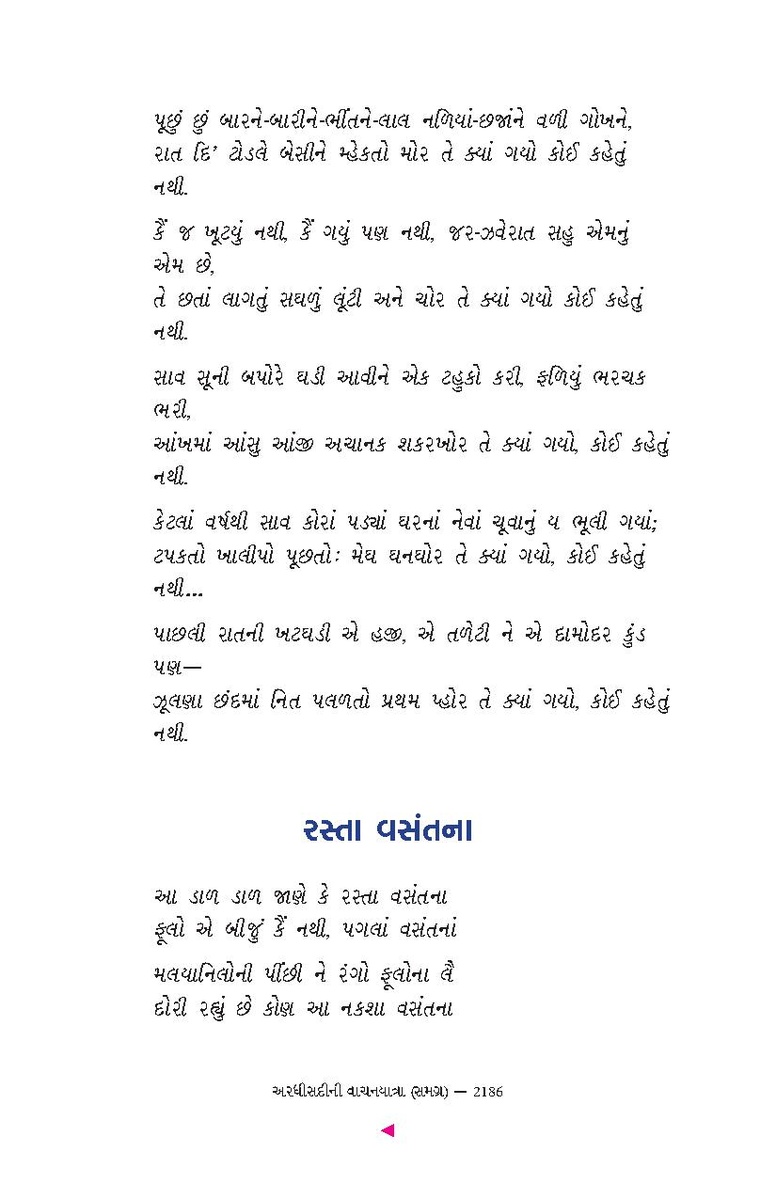 પૂછું છું બારને-બારીને-ભીંતને-લાલ નળિયાં-છજાંને વળી ગોખને,
રાત દિ’ ટોડલે બેસીને મ્હેકતો મોર તે ક્યાં ગયો કોઈ કહેતું
નથી.
કૈં જ ખૂટયું નથી, કૈં ગયું પણ નથી, જર-ઝવેરાત સહુ એમનું
એમ છે,
તે છતાં લાગતું સઘળું લૂંટી અને ચોર તે ક્યાં ગયો કોઈ કહેતું
નથી.
સાવ સૂની બપોરે ઘડી આવીને એક ટહુકો કરી, ફળિયું ભરચક
ભરી,
આંખમાં આંસુ આંજી અચાનક શકરખોર તે ક્યાં ગયો, કોઈ કહેતું
નથી.
કેટલાં વર્ષથી સાવ કોરાં પડ્યાં ઘરનાં નેવાં ચૂવાનું ય ભૂલી ગયાં;
ટપકતો ખાલીપો પૂછતોઃ મેઘ ઘનઘોર તે ક્યાં ગયો, કોઈ કહેતું
નથી...
પાછલી રાતની ખટઘડી એ હજી, એ તળેટી ને એ દામોદર કુંડ
પણ—
ઝૂલણા છંદમાં નિત પલળતો પ્રથમ પ્હોર તે ક્યાં ગયો, કોઈ કહેતું
નથી.
રસ્તા વસંતના
આ ડાળ ડાળ જાણે કે રસ્તા વસંતના
ફૂલો એ બીજું કૈં નથી, પગલાં વસંતનાં
મલયાનિલોની પીંછી ને રંગો ફૂલોના લૈ
દોરી રહ્યું છે કોણ આ નકશા વસંતના
અરધીસદીની વાચનયાત્રા (સમગ્ર) — 2186